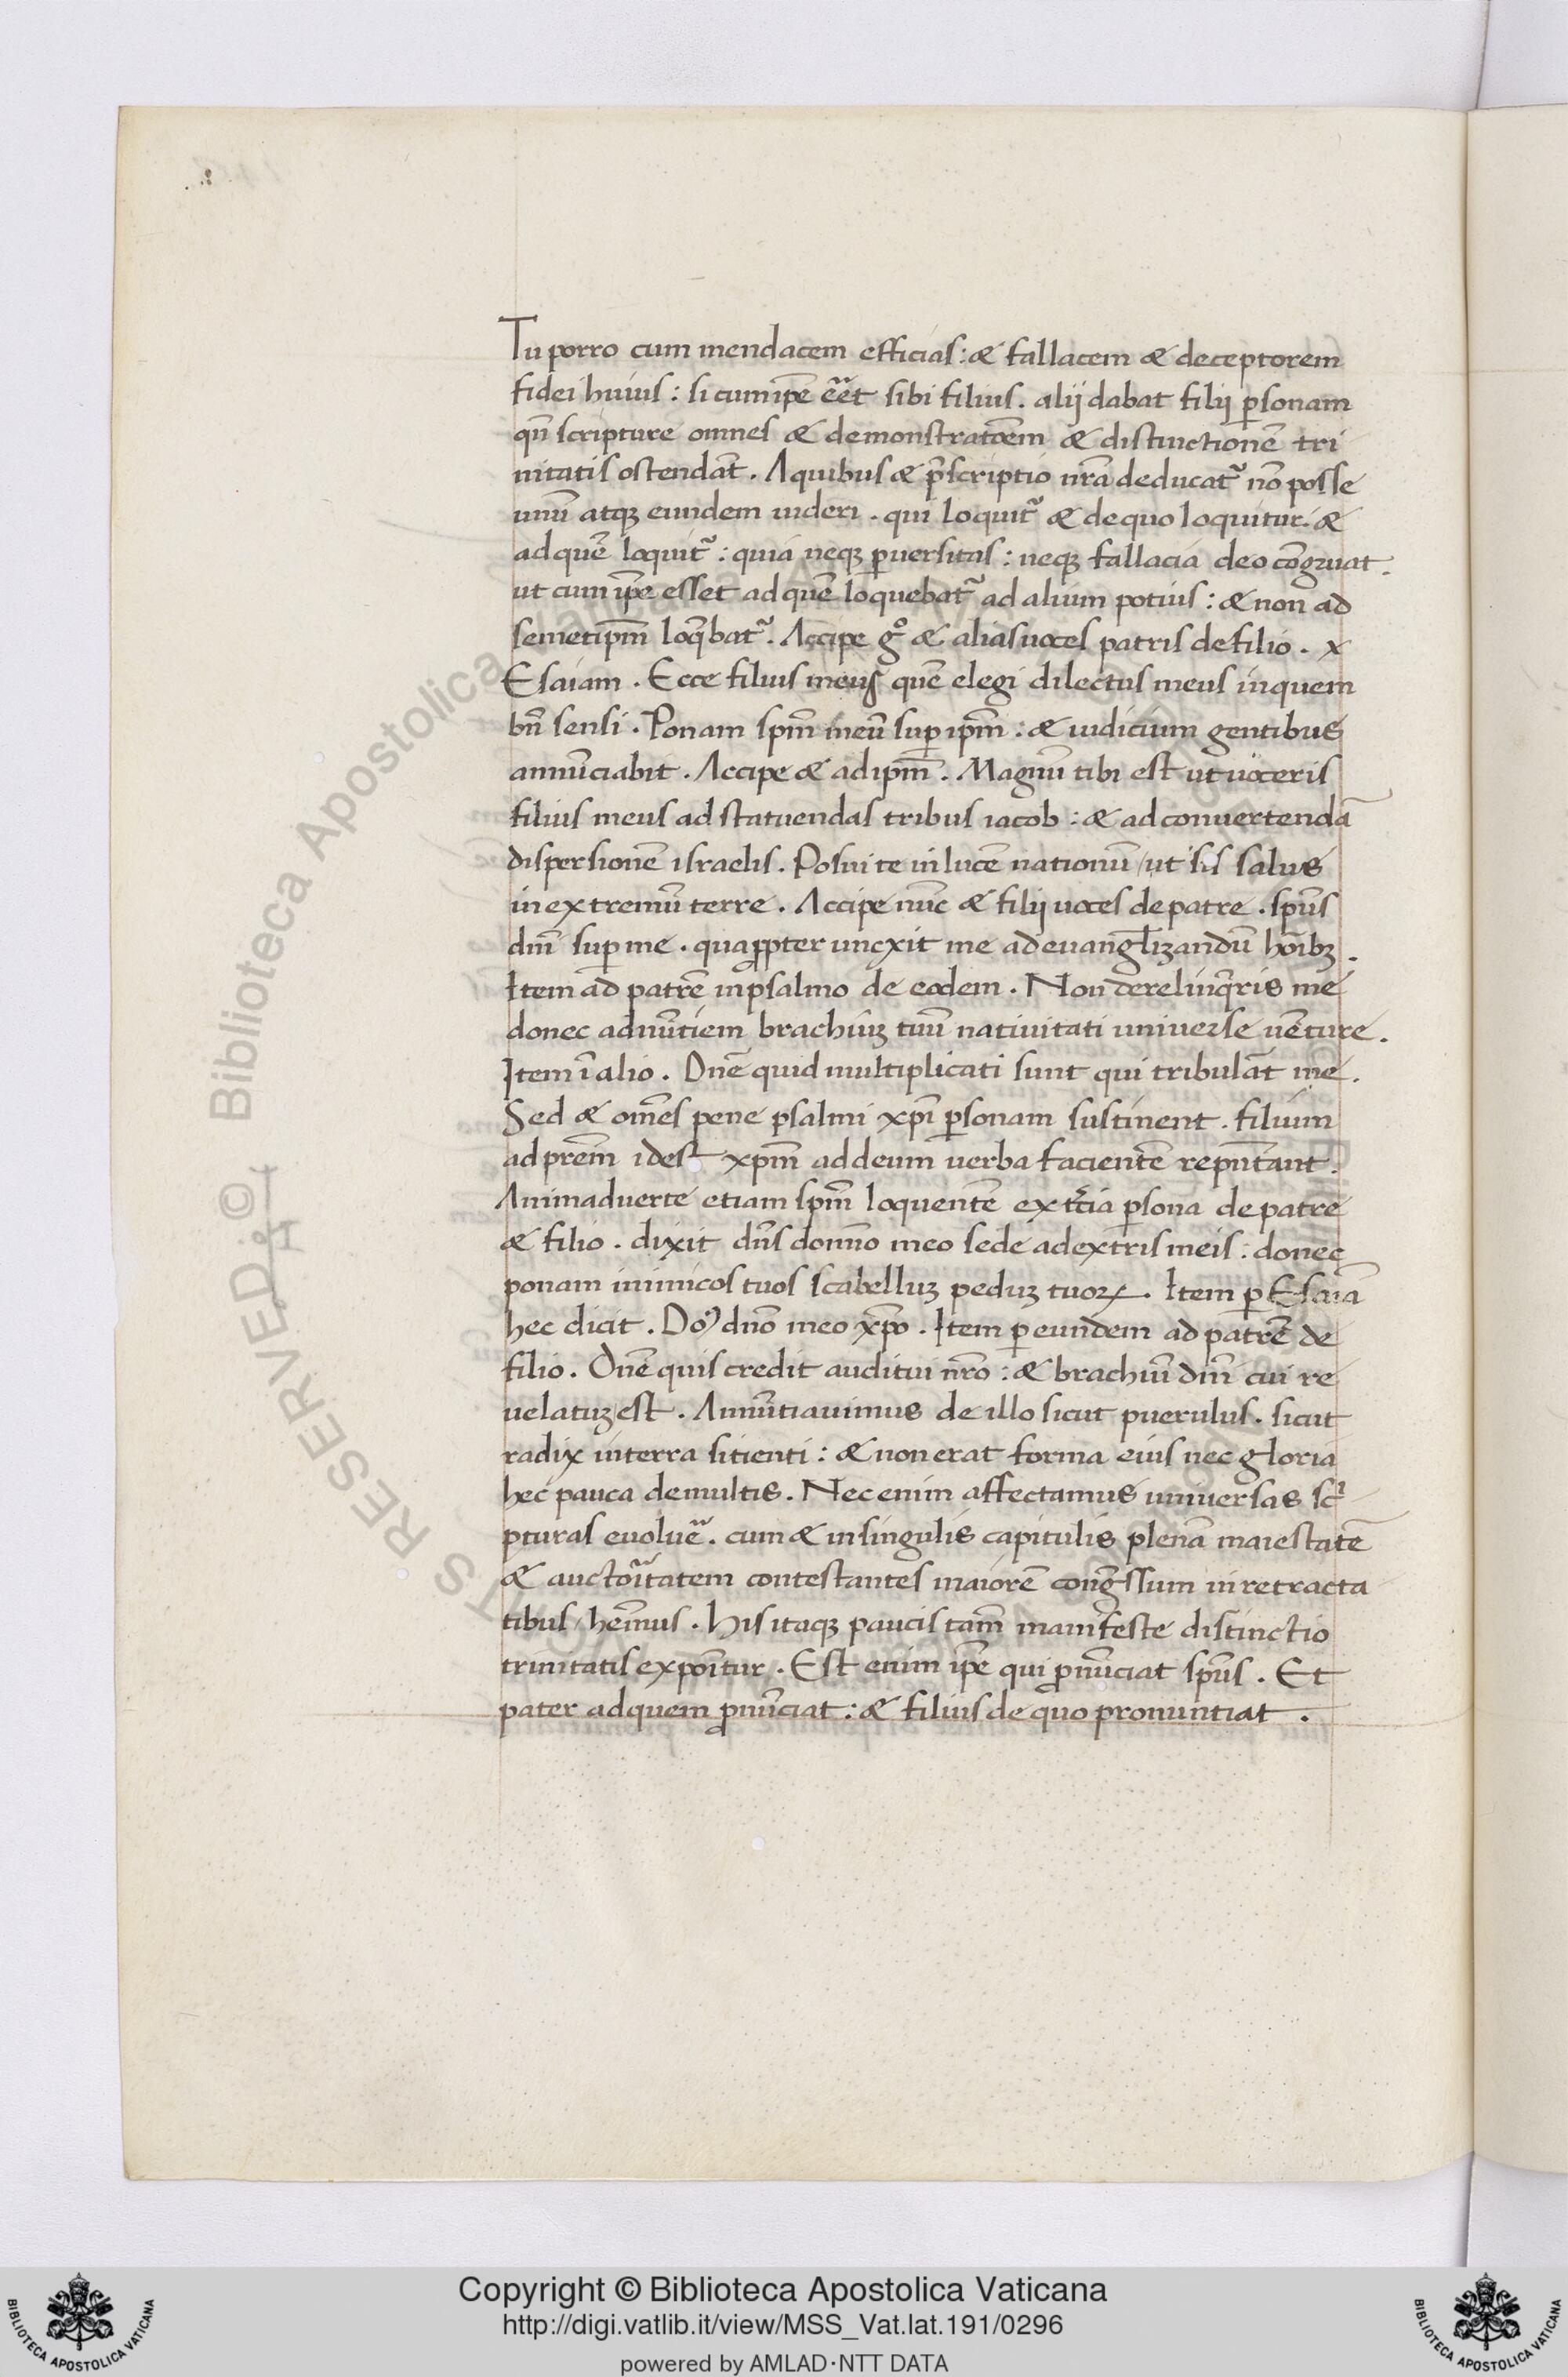 Tu porro cum mendacem efficias : & fallacem & deceptorem
fidei huius : si cum ip̄e eēt sibi filius . alij dabat filij ꝑsonam
qn̄ scripture omnes & demonstratōem & distinctionē tri
nitatis ostendāt . A quibus & p̄scriptio nr̄a deducat᷑ nō posse
unū atqꝫ eundem uideri . qui loquit᷑ & de quo loquitur . &
ad quē loquit᷑ : quia neqꝫ ꝑuersitas : neqꝫ fallacia deo cōgruat .
ut cum ip̄e esset ad quē loquebat᷑ ad alium potius : & non ad
semetip̄m loq̄bat᷑ . Accipe gͦ & alias uoces patris de filio . x
Esaiam . Ecce filius meus quē elegi dilectus meus in quem
bn̄ sensi . Ponam sp̄m meū suꝑ ip̄m : & iudicium gentibus
annūciabit . Accipe & ad ip̄m . Magnū tibi est ut uoceris
filius meus ad statuendas tribus iacob : & ad conuertendā
dispersionē israelis . Posui te in lucē nationū / ut sis salus
in extremū terre . Accipe nūc & filij uoces de patre . sp̄us
dn̄i suꝑ me . quaꝓpter uncxit me ad euangl̄izandū hoībꝫ .
Item ad patrē in psalmo de eodem . Non derelinq̄ris me
donec adnūtiem brachiuꝫ tuū natiuitati uniuerse uēture .
Item ī alio . Dn̄e quid multiplicati sunt qui tribulāt me .
Sed & om̄es pene psalmi xp̄i ꝑsonam sustinent . filium
ad pr̄em idest xp̄m ad deum uerba facientē repn̄tant .
Animaduerte etiam sp̄m loquentē ex t̄cia ꝑsona de patre
& filio . dixit dn̄s domino meo sede a dextris meis : donec
ponam inimicos tuos scabelluꝫ peduꝫ tuoꝝ . Item ꝑ Esaiā
hec dicit . Do᷒ dn̄o meo xp̄o . Item ꝑ eundem ad patrē de
filio . Dn̄e quis credit auditui nr̄o : & brachiū dn̄i cui re
uelatuꝫ est . Annūtiauimus de illo sicut puerulus . sicut
radix in terra sitienti : & non erat forma eius nec gloria
hec pauca de multis . Nec enim affectamus uniuersas sc̄
pturas euoluē . cum & in singulis capitulis plenā maiestatē
& auctoītatem contestantes maiorē conḡssum in retracta
tibus / hēmus . His itaqꝫ paucis tam̄ manifeste distinctio
trinitatis expōitur . Est enim ip̄e qui ꝓnūciat sp̄us . Et
pater ad quem ꝓnūciat : & filius de quo pronuntiat .
© Biblioteca Apostolica
RESERVED
Copyright © Biblioteca Apostolica Vaticana
http://digi.vatlib.it/view/MSS_Vat.lat.191/0296
powered by AMLAD·NTT DATA
BIBLIOTECA APOSTOLICA VATICANA
BIBLIOTECA APOSTOLICA VATICANA